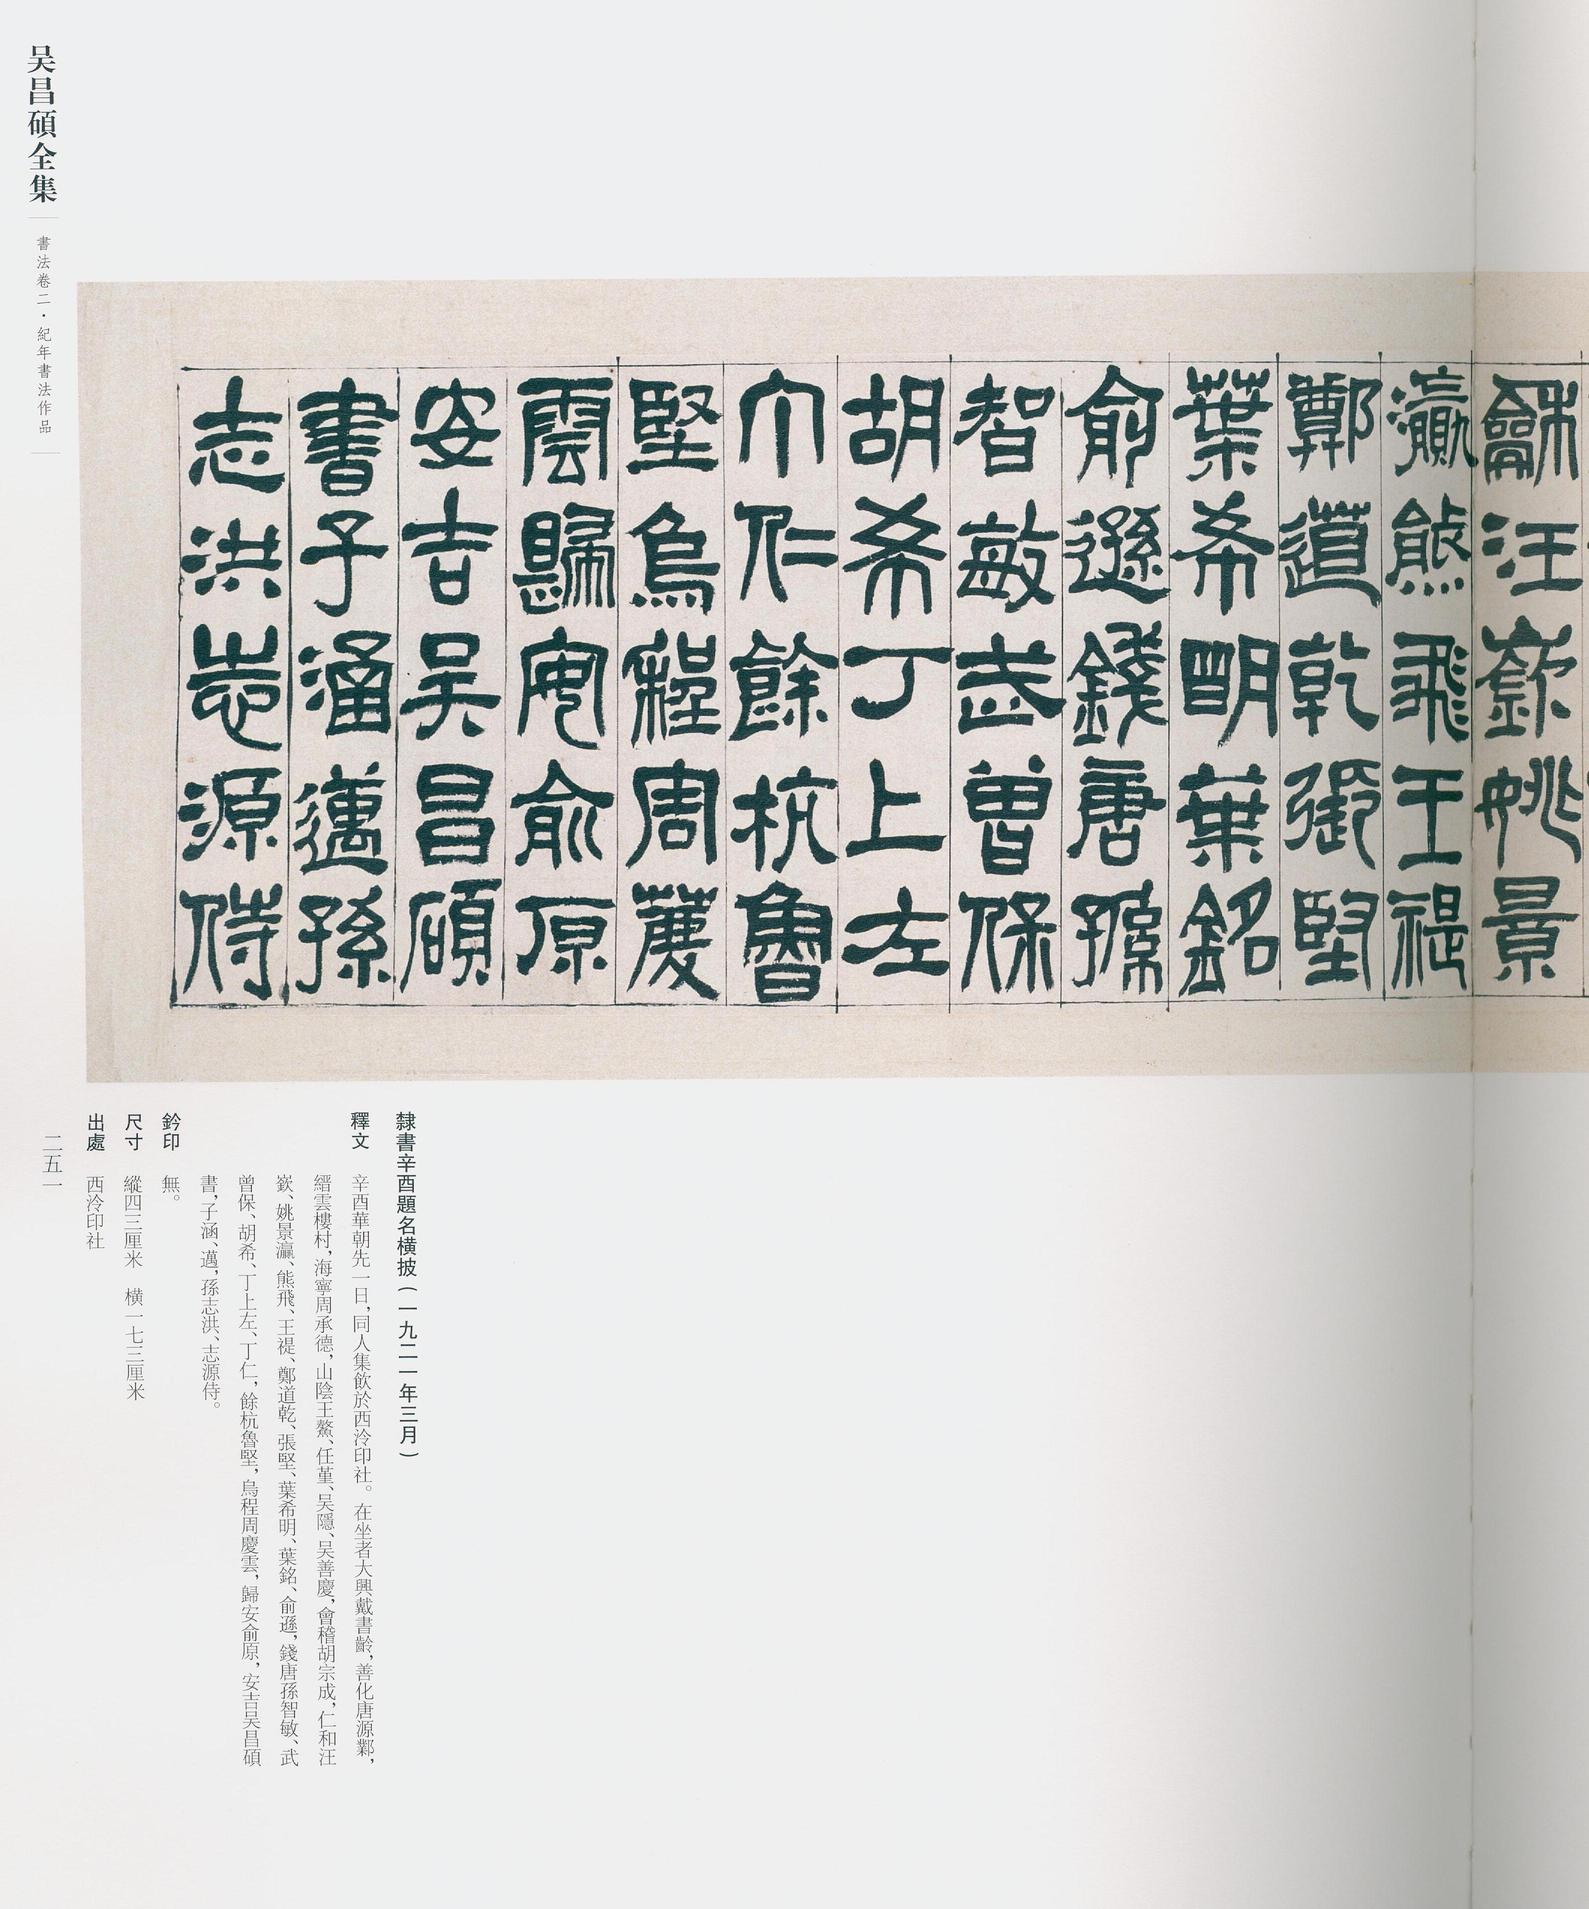 龢汪嶔姚景
瀛熊飛王禔
鄭道乾張堅
葉希明葉銘
俞遜錢唐孫
智敏武曾保
胡希丁上左
丁仁餘杭魯
堅烏程周慶
雲歸安俞原
安吉吴昌碩
書子涵邁孫
志洪志源侍
隸書辛酉題名橫披(一九二一年三月)
釋文 辛酉華朝先一日,同人集飲於西泠印社。在坐者大興戴書齡,善化唐源鄴,
縉雲樓村,海寧周承德,山陰王鰲、任堇、吴隱、吴善慶,會稽胡宗成,仁和汪
嶔、姚景瀛、熊飛、王禔、鄭道乾、張堅、葉希明、葉銘、俞遜,錢唐孫智敏、武
曾保、胡希、丁上左、丁仁,餘杭魯堅,烏程周慶雲,歸安俞原,安吉吴昌碩
書,子涵、邁,孫志洪、志源侍。
鈐印 無。
尺寸 縱四三厘米 橫一七三厘米
出處 西泠印社
吴昌碩全集
書法卷二·紀年書法作品
二五一